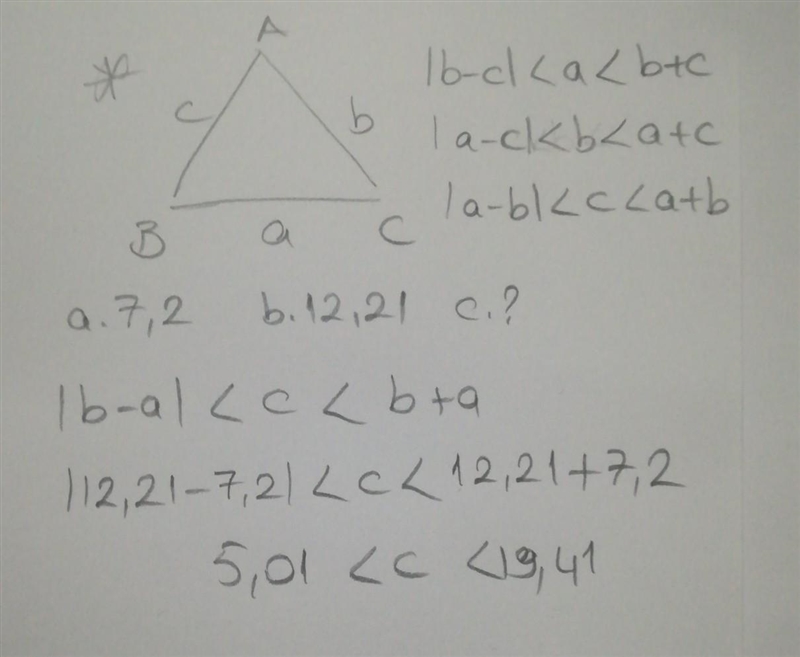 * A
c b
B a C
|b-c| < a < b+c
|a-c| < b < a+c
|a-b| < c < a+b
a. 7,2 b. 12,21 c. ?
|b-a| < c < b+a
|12,21-7,2| < c < 12,21+7,2
5,01 < c < 19,41